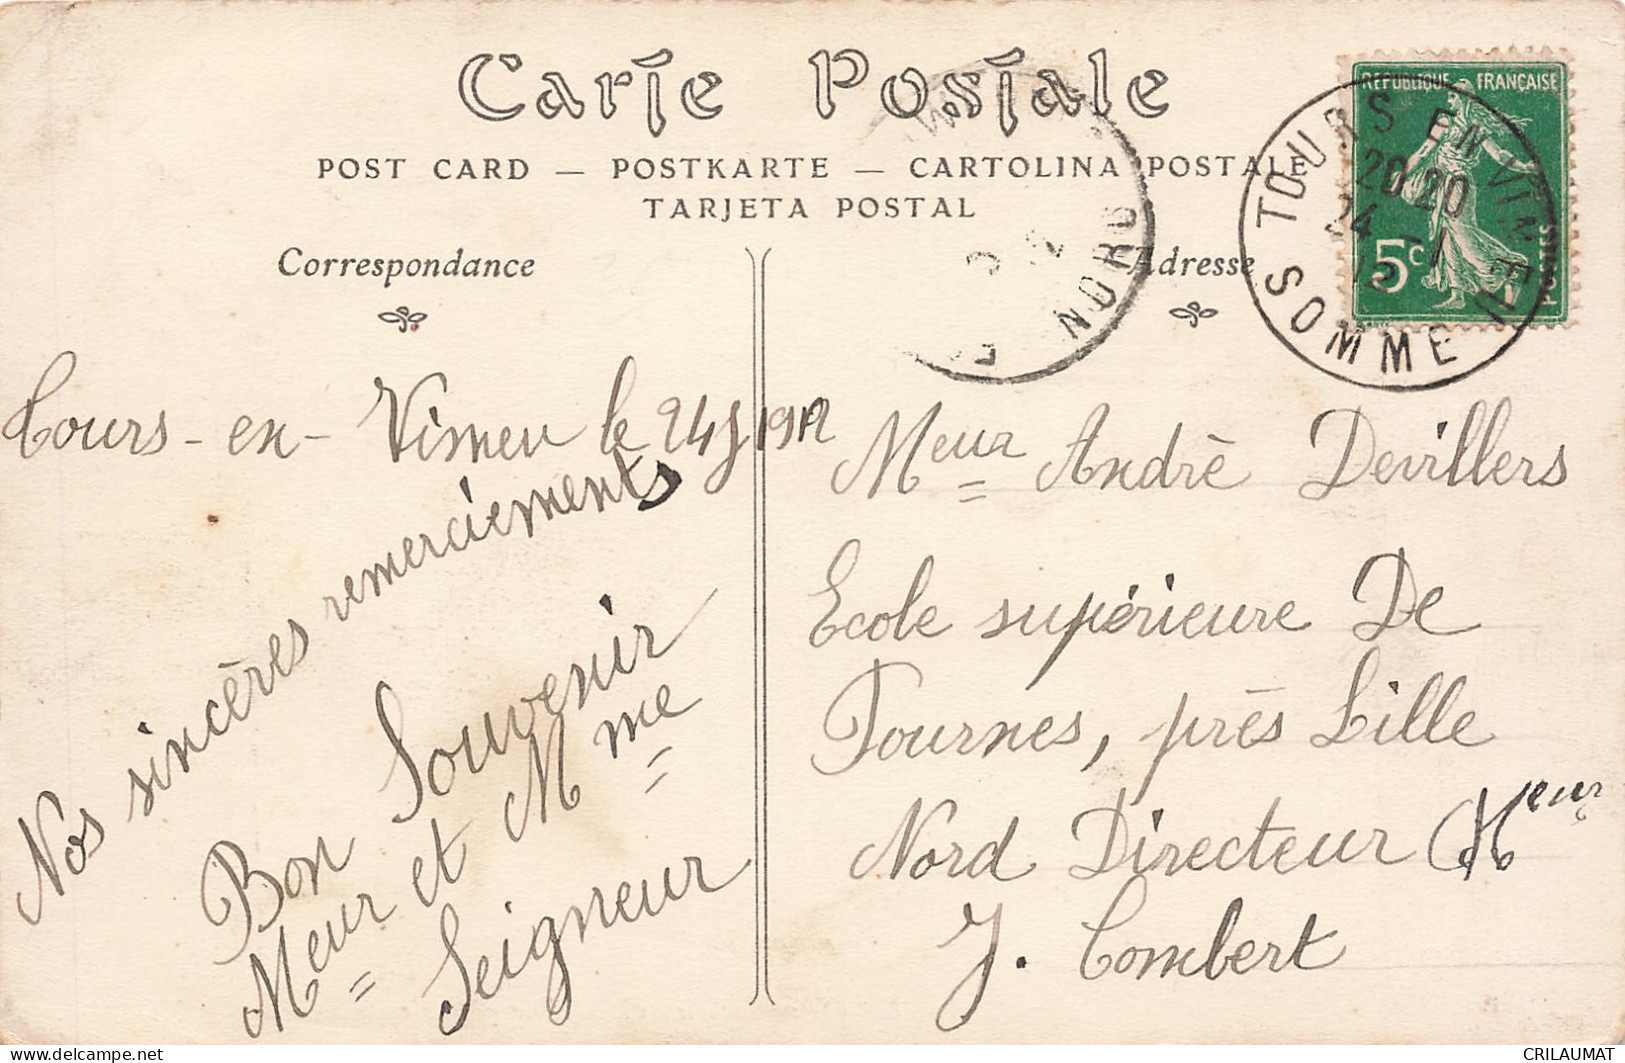 Carte Postale
POST CARD — POSTKARTE — CARTOLINA POSTALE
TARJETA POSTAL
Correspondance
Adresse
REPUBLIQUE FRANÇAISE
5c
POSTES
TOURS EN VIMEU
20 20
24 - 1
SOMME
NORD
Tours-en-Vimeu le 24 J 1912
Nos sincères remerciements
Bon Souvenir
Meur et Mme
Seigneur
Meur André Devillers
Ecole supérieure De
Fournes, près Lille
Nord Directeur Meur
J. Combert
delcampe.net
CRILAUMAT